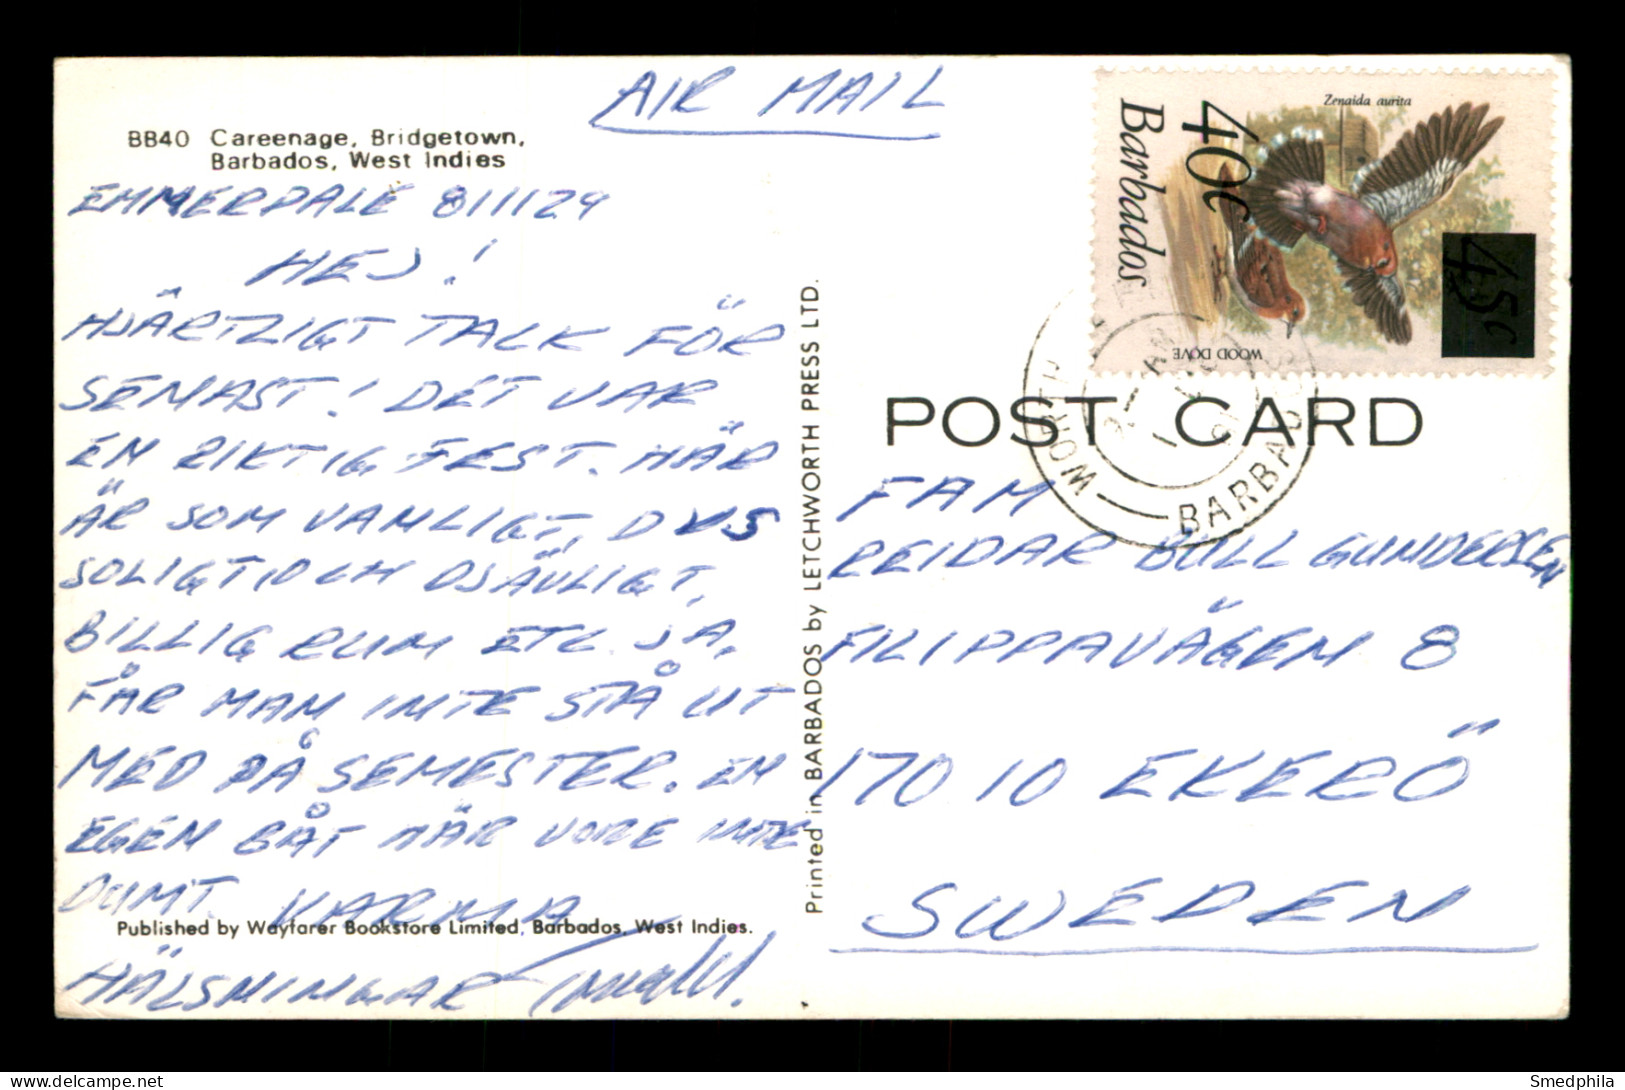 AIR MAIL
BB40 Careenage, Bridgetown,
Barbados, West Indies
EMMERDALE 811129
HEJ!
HJÄRTLIGT TACK FÖR
SENAST! DET VAR
EN RIKTIG FEST. HÄR
ÄR SOM VANLIGT, DVS
SOLIGT OCH DJÄVLIGT,
BILLIG RUM ETC. JA,
FÅR MAN INTE STÅ UT
MED PÅ SEMESTER. EN
EGEN BÅT HÄR VORE INTE
DUMT. VARMA
Published by Wayfarer Bookstore Limited, Barbados, West Indies.
HÄLSNINGAR
Printed in BARBADOS by LETCHWORTH PRESS LTD.
Zenaida aurita
40c
Barbados
45c
WOOD DOVE
WORTH
BARBADOS
POST CARD
FAM
REIDAR BULL GUNDERSEN
FILIPPAVÄGEN 8
170 10 EKERÖ
SWEDEN
Smedphila